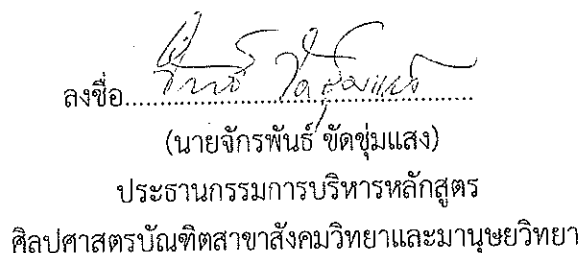 ลงชื่อ
(นายจักรพันธ์ ขัดชุ่มแสง)
ประธานกรรมการบริหารหลักสูตร
ศิลปศาสตรบัณฑิตสาขาสังคมวิทยาและมานุษยวิทยา